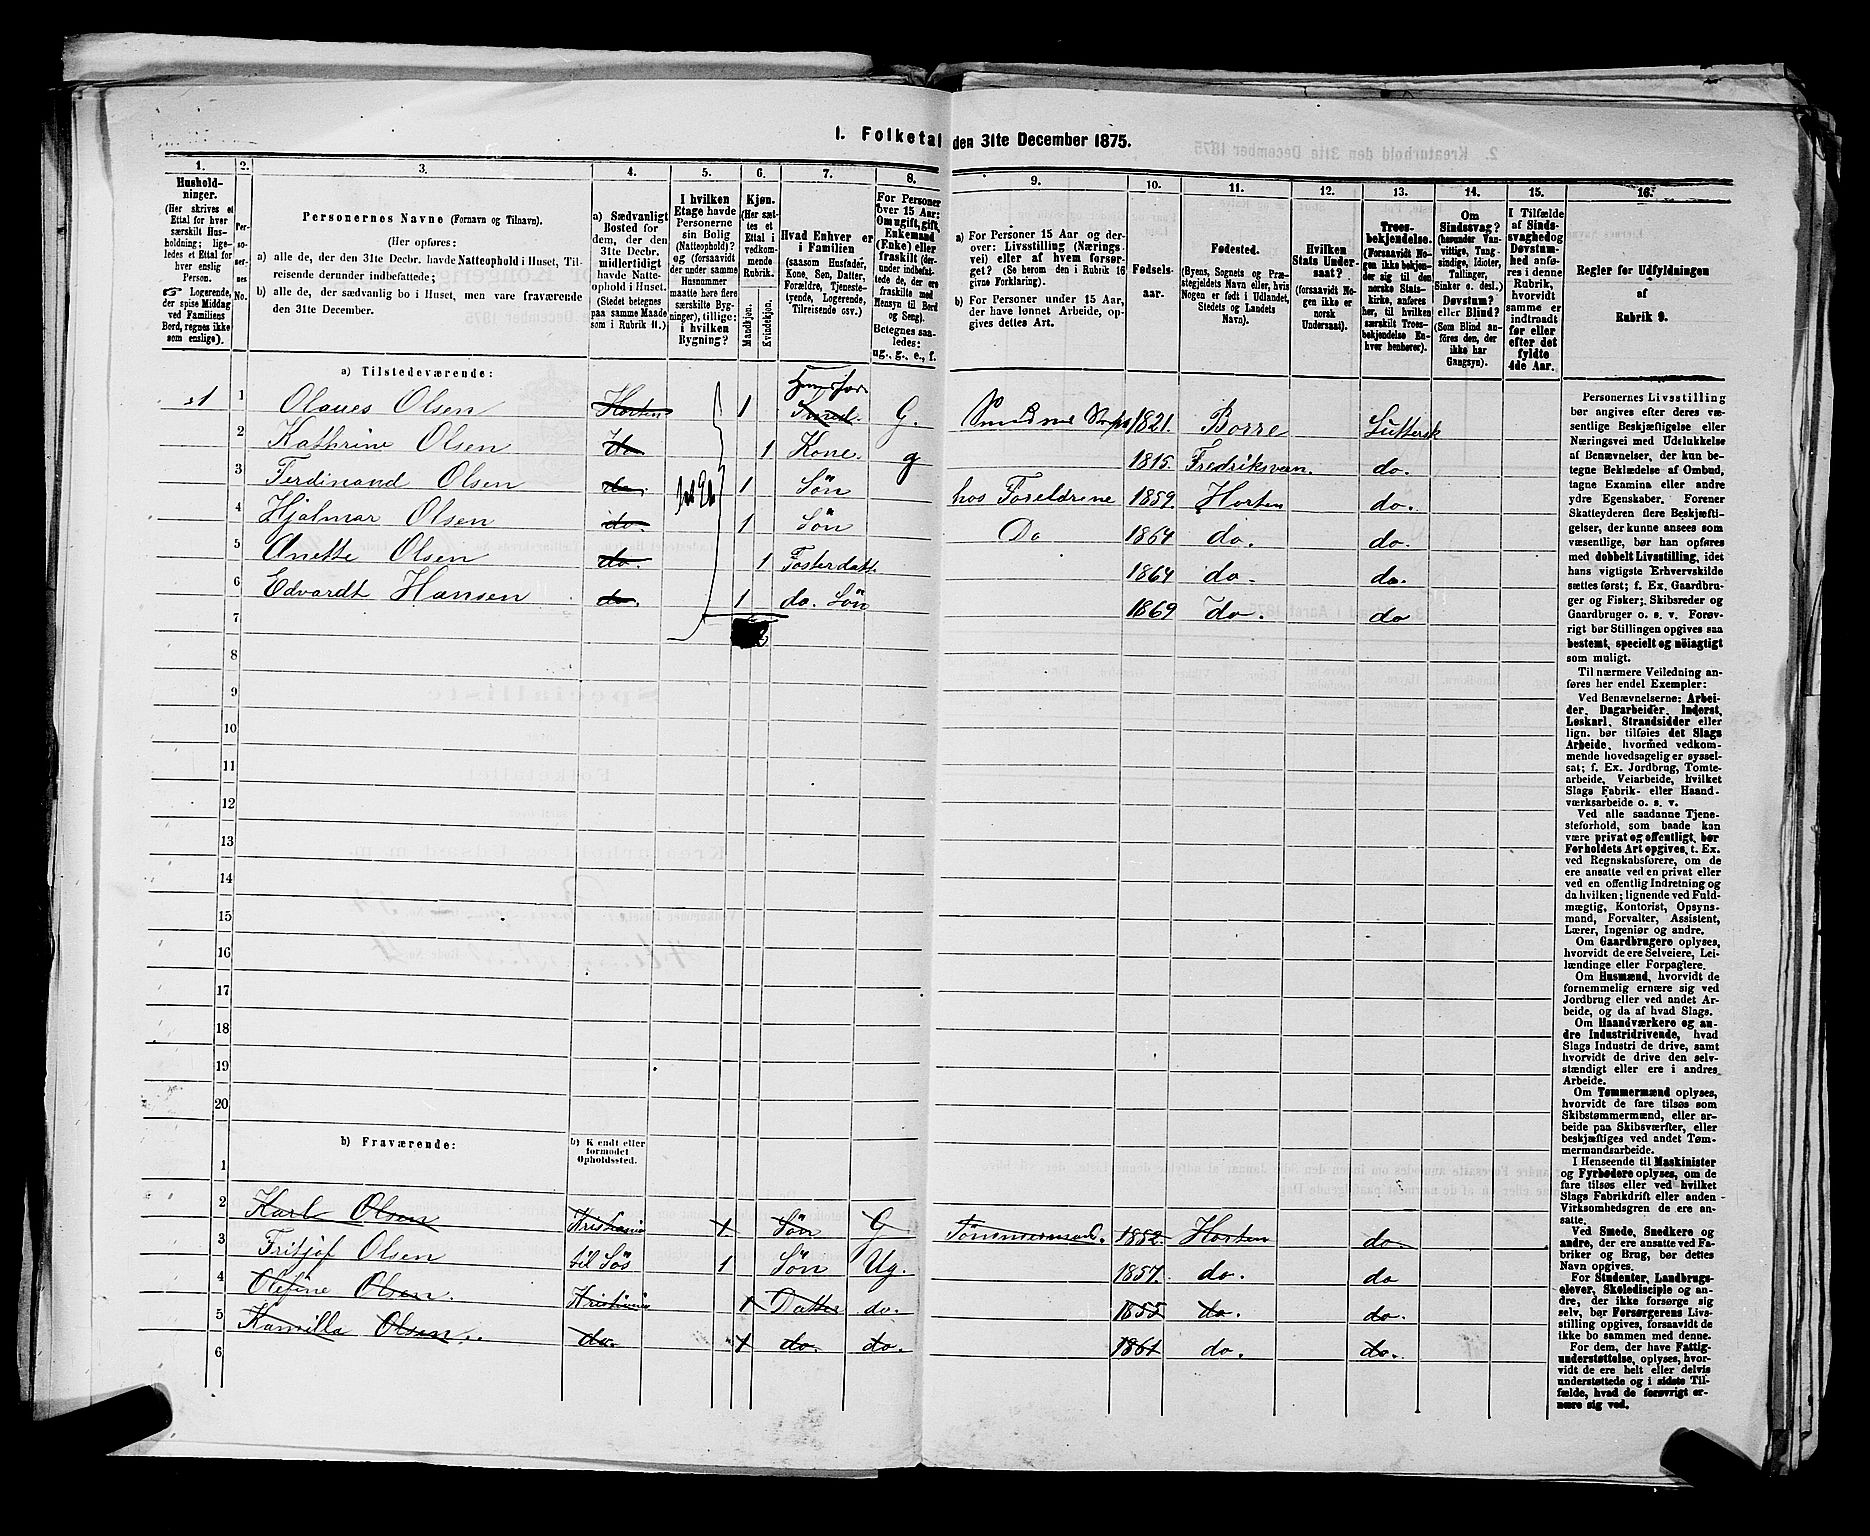 1. Folketal den 31te December 1875.
1. 2. 3. 4. 5. 6. 7. 8. 9. 10. 11. 12. 13. 14. 15. 16.
Hushold-
ninger.
(Her skrives et
Ettal for hver
særskilt Hus-
holdning; lige-
ledes et Ettal for
hver enslig
Person.
☞ Logerende,
der spise Middag
ved Familiens
Bord, regnes ikke
som enslige).
Per-
so-
ner-
nes
No.
Personernes Navne (Fornavn og Tilnavn).
(Her opføres:
a) alle de, der den 31te Decbr. havde Natteophold i Huset, Til-
reisende derunder indbefattede;
b) alle de, der sædvanlig bo i Huset, men vare fraværende
den 31te December.
a) Sædvanligt
Bosted for
dem, der den
31te Decbr.
midlertidigt
havde Natte-
ophold i Huset.
(Stedet betegnes
paa samme Maade
som i Rubrik 11.)
I hvilken
Etage havde
Personerne
sin Bolig
(Natteophold)?
og (forsaavidt
der under samme
Husnummer
maatte høre flere
særskilte Byg-
ninger), tillige:
i hvilken
Bygning?
Kjøn.
(Her sæt-
tes et
Ettal i
vedkom-
mende
Rubrik.
Mandkjøn.
Kvindekjøn.
Hvad Enhver er
i Familien
(saasom Husfader,
Kone, Søn, Datter,
Forældre, Tjeneste-
tyende, Logerende,
Tilreisende osv.)
For Personer
over 15 Aar:
Om ugift, gift,
Enkemand
(Enke) eller
fraskilt (der-
under indbefat-
tede de, der ere
fraskilte med
Hensyn til Bord
og Seng).
Betegnes saa-
ledes:
ug., g., e., f.
a) For Personer 15 Aar og der-
over: Livsstilling (Nærings-
vei) eller af hvem forsør-
get? (Se herom den i Rubrik 16
givne Forklaring).
b) For Personer under 15 Aar,
der have lønnet Arbeide, op-
gives dettes Art.
Fødsels-
aar.
Fødested.
(Byens, Sognets og Præ-
stegjeldets Navn eller, hvis
Nogen er født i Udlandet,
Stedets og Landets
Navn).
Hvilken
Stats Under-
saat?
(forsaavidt No-
gen ikke er
norsk
Undersaat).
Troes-
bekjendelse.
(Forsaavidt No-
gen ikke bekjen-
der sig til den
norske Stats-
kirke, anføres
her, til hvilken
særskilt Troes-
bekjendelse En-
hver henhører).
Om
Sindssvag?
(herunder Van-
vittige, Tung-
sindige, Idioter,
Tullinger,
Sinker o. desl.)
Døvstum?
eller Blind?
(Som Blind an-
føres den, der
ikke har
Gangsyn).
I Tilfælde
af Sinds-
svaghed og
Døvstum-
hed anfø-
res i denne
Rubrik,
hvorvidt
samme er
indtraadt
før eller
efter det
fyldte
4de Aar.
Regler for Udfyldningen
af
Rubrik 9.
a) Tilstedeværende:
1 1 Olaues Olsen Horten 1 Smed. G. 1821. Borre Luttersk
2 Kathrine Olsen do 1 Kone. g 1815. Fredriksvern. do.
3 Ferdinand Olsen do. 1 Søn hos Foreldrene 1859. Horten do.
4 Hjalmar Olsen do. 1 Søn Do 1864 do. do.
5 Anette Olsen do. 1 Fosterdatt. 1864 do. do.
6 Edvardt Hansen do. 1 do. Søn 1869 do. do
7
8
9
10
11
12
13
14
15
16
17
18
19
20
b) Fraværende:
b) Kjendt eller
formodet
Opholdssted.
1
2 Karl Olsen Kristiania 1 Søn G Tømmermand. 1852. Horten do
3 Fritjof Olsen til Søs 1 Søn Ug. 1857. do. do
4 Olefine Olsen. Kristiania 1 Datter do. 1855 do. do.
5 Kamilla Olsen. do. 1 do. do. 1861 do. do.
6
Personernes Livsstilling
bør angives efter deres væ-
sentlige Beskjæftigelse eller
Næringsvei med Udelukkelse
af Benævnelser, der kun be-
tegne Beklædelse af Ombud,
tagne Examina eller andre
ydre Egenskaber. Forener
Skatteyderen flere Beskjæfti-
gelser, der kunne ansees som
væsentlige, bør han opføres
med dobbelt Livsstilling, idet
hans vigtigste Erhvervskilde
sættes først; f. Ex. Gaardbru-
ger og Fisker; Skibsreder og
Gaardbruger o. s. v. Forøv-
rigt bør Stillingen opgives saa
bestemt, specielt og nøiagtigt
som muligt.
Til nærmere Veiledning an-
føres her endel Exempler:
Ved Benævnelserne: Arbei-
der, Dagarbeider, Inderst,
Løskarl, Strandsidder eller
lign. bør tilføies det Slags
Arbeide, hvormed vedkom-
mende hovedsagelig er syssel-
sat; f. Ex. Jordbrug, Tomte-
arbeide, Veiarbeide, hvilket
Slags Fabrik- eller Haand-
værksarbeide o. s. v.
Ved alle saadanne Tjene-
steforhold, som baade kan
være privat og offentligt, bør
Forholdets Art opgives, t. Ex.
ved Regnskabsførere, om de
ere ansatte ved en privat eller
ved en offentlig Indretning og
da hvilken; lignende ved Fuld-
mægtig, Kontorist, Opsyns-
mand, Forvalter, Assistent,
Lærer, Ingeniør og andre.
Om Gaardbrugere oplyses,
hvorvidt de ere Selveiere, Lei-
lændinge eller Forpagtere.
Om Husmænd, hvorvidt de
fornemmelig ernære sig ved
Jordbrug eller ved andet Ar-
beide, og da af hvad Slags.
Om Haandværkere og an-
dre Industridrivende, hvad
Slags Industri de drive, samt
hvorvidt de drive den selv-
stændigt eller ere i andres
Arbeide.
Om Tømmermænd oplyses,
hvorvidt de fare tilsøs som
Skibstømmermænd, eller ar-
beide paa Skibsværfter, eller
beskjæftiges ved andet Tøm-
mermandsarbeide.
I Henseende til Maskinister
og Fyrbødere oplyses, om de
fare tilsøs eller ved hvilket
Slags Fabrikdrift eller anden
Virksomhedsgren de ere an-
satte.
Ved Smede, Snedkere og
andre, der ere ansatte ved Fa-
briker og Brug, bør dettes
Navn opgives.
For Studenter, Landbrugs-
elever, Skoledisciple og an-
dre, der ikke forsørge sig
selv, bør Forsørgerens Livs-
stilling opgives, forsaavidt de
ikke bo sammen med denne.
For dem, der have Fattig-
understøttelse, oplyses, hvor-
vidt de ere helt eller delvis
understøttede og i sidste Til-
fælde, hvad de forøvrigt er-
nære sig ved.